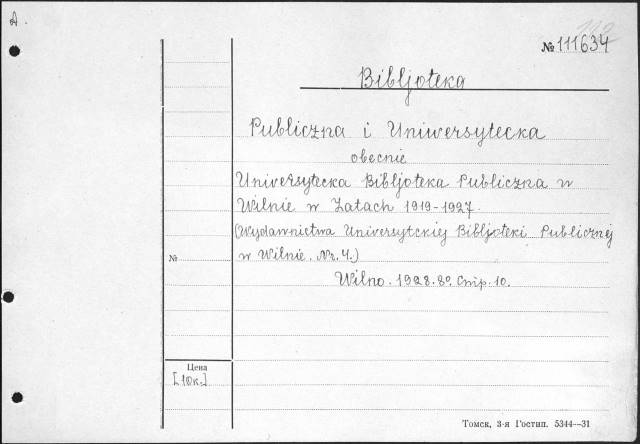 A.
112
№ 111634
Bibljoteka
Publiczna i Uniwersytecka
obecnie
Uniwersytecka Bibljoteka Publiczna w
Wilnie w Latach 1919-1927.
(Wydawnictwa Uniwersytckiej Bibljoteki Publicznej
w Wilnie. Nr. 4.)
№
Wilno. 1928. 8º. Стр. 10.
Цена
[10к.]
Томск, 3-я Гостип. 5344—31